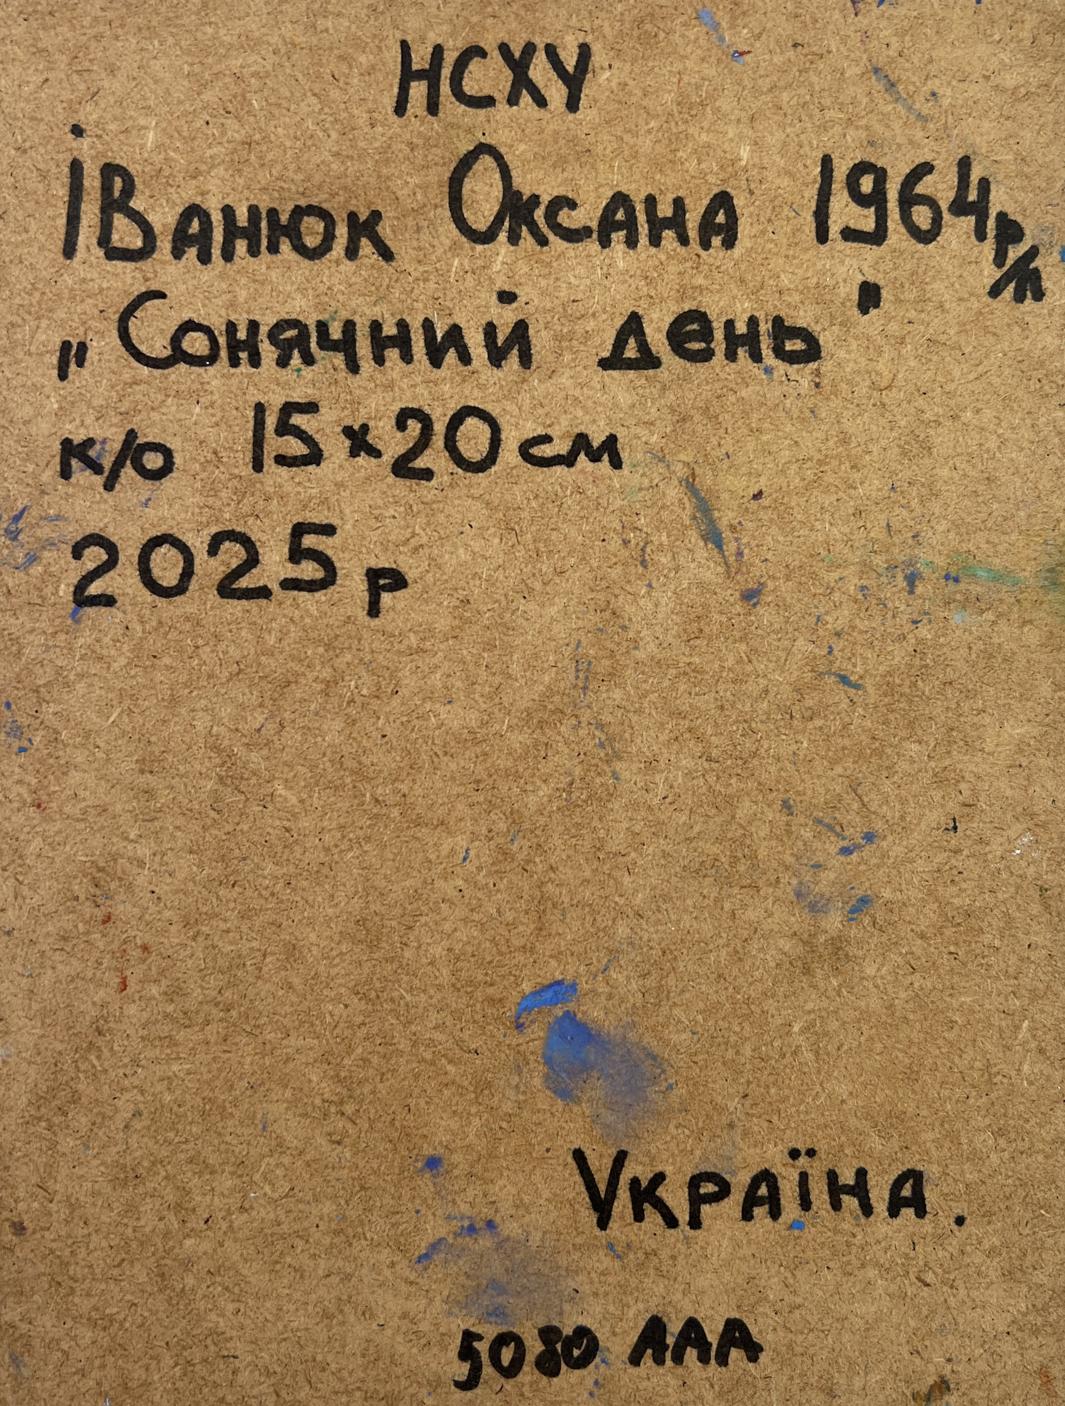 НСХУ
Іванюк Оксана 1964 р/н
„Сонячний день"
к/о 15×20 см
2025 р
Україна.
5080 ААА